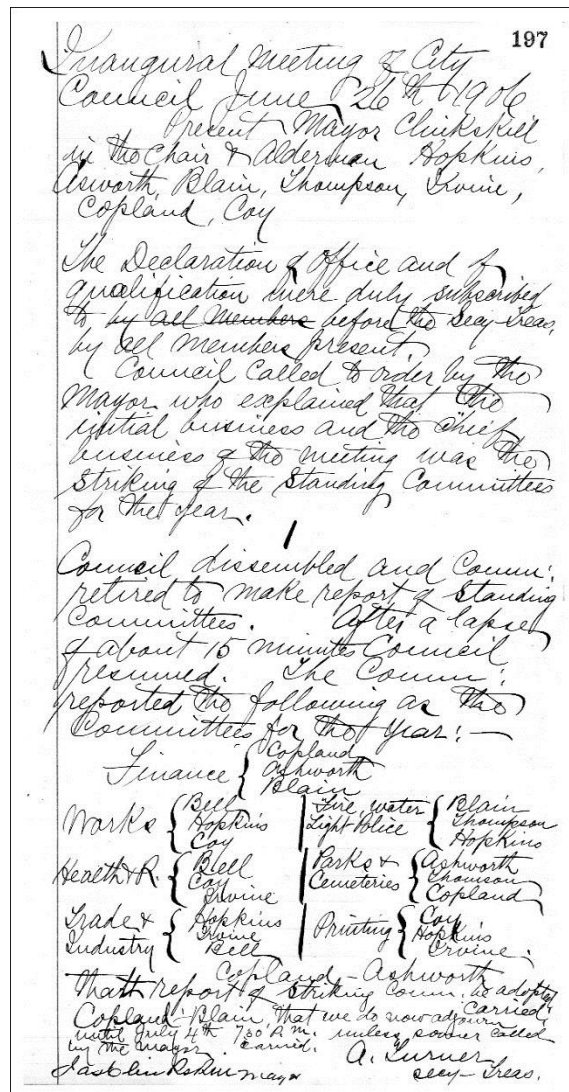 197
Inaugural Meeting of City
Council June 26th 1906
Present Mayor Clinkskill
in the Chair & Alderman Hopkins,
Asworth, Blain, Thompson, Irvine,
Copland, Coy
The Declaration of Office and of
qualification were duly subscribed
to by all members before the Secy-Treas.
by all members present.
Council called to order by the
Mayor who explained that the
initial business and the chief
business of the meeting was the
striking of the Standing Committees
for the year.
Council dissembled and Comm:
retired to make report of Standing
Committees. After a lapse
of about 15 minutes Council
resumed. The Comm:
reported the following as the
Committees for the Year:—
Finance { Copland Ashworth Blain
Works { Bell Hopkins Coy
Fire, water Light Police { Blain Thompson Hopkins
Health & R. { Bell Coy Irvine
Parks & Cemeteries { Ashworth Thomson Copland
Trade & Industry { Hopkins Irvine Bell
Printing { Coy Hopkins Ervine.
Copland - Ashworth
That report of Striking Comm. be adopted
Carried.
Copland-Blain That we do now adjourn
until July 4th 7:30 P.M. unless sooner called
by the Mayor. Carried.
A. Turner
Secy-Treas.
Jas Clinkskill Mayor